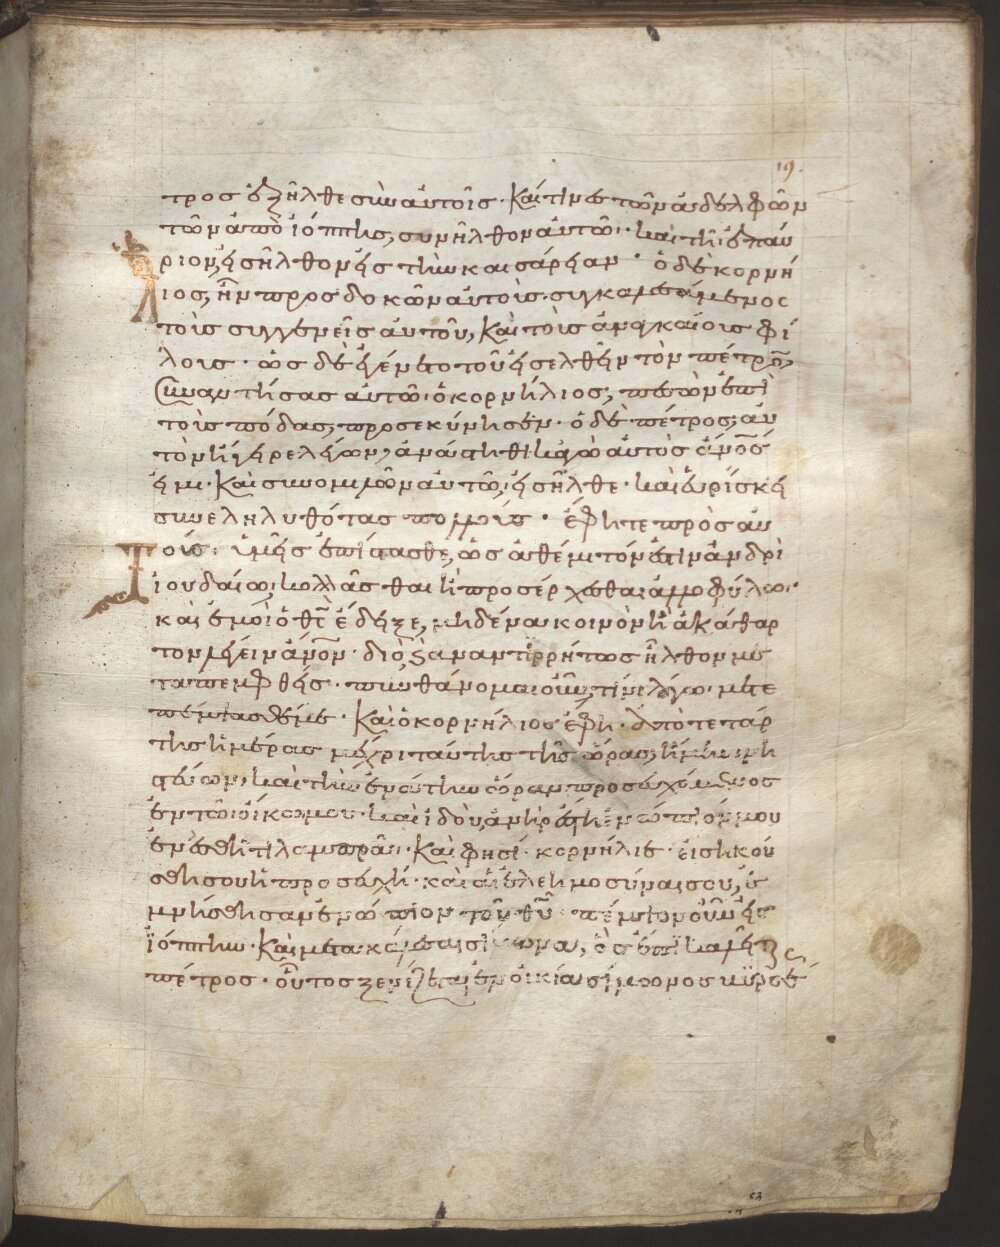 19.
τρος ἐξῆλθε σὺν αὐτοῖς · Καί τινες τῶν ἀδελφῶν
τῶν ἀπὸ ἰόππης, συνῆλθον αὐτῶ · καὶ τῆ ἐπαύ
ριον, εἰσῆλθον εἰς τὴν καισάρειαν · ὁ δὲ κορνή
λιος, ἦν προσδοκῶν αὐτοὺς συγκαλεσάμενος
τοὺς συγγενεῖς αὐτοῦ, Καὶ τοὺς ἀναγκαίους φί
λους · ὡς δὲ ἐγένετο τοῦ εἰσελθεῖν τὸν πέτρον,
Συναντήσας αὐτῶ ὁ κορνήλιος, πεσὼν ἐπὶ
τοὺς πόδας, προσεκύνησεν · ὁ δὲ πέτρος, αὐ
τὸν ἤγειρε λέγων, ἀνάστηθι κἀγὼ αὐτὸς ἄνος
εἰμι · Καὶ συνομιλῶν αὐτῶ, εἰσῆλθε · καὶ εὑρίσκει
συνεληλυθότας πολλούς · ἔφη τε πρὸς αὐ
τούς · ὑμεῖς ἐπίστασθε, ὡς ἀθέμιτόν ἐστιν ἀνδρὶ
ἰουδαίω, κολλᾶσθαι ἢ προσέρχεσθαι ἀλλοφύλω ·
καὶ ἐμοὶ ὁ θς ἔδειξε, μηδένα κοινὸν ἢ ἀκάθαρ
τον λέγειν ἄνον · διὸ καὶ ἀναντιρρήτως ἦλθον με
ταπεμφθείς · πυνθάνομαι οὖν, τίνι λόγω μετε
πέμψασθέ με · Καὶ ὁ κορνήλιος ἔφη · ἀπὸ τετάρ
της ἡμέρας μέχρι ταύτης τῆς ὥρας, ἤμην νη
στεύων, καὶ τὴν ἐννάτην ὥραν προσευχόμενος
ἐν τῶ οἴκω μου · καὶ ἰδού, ἀνὴρ ἔστη ἐνώπιόν μου
ἐν ἐσθῆτι λαμπρᾶ · Καὶ φησί · κορνήλιε · εἰσηκού
σθη σου ἡ προσευχή · καὶ αἱ ἐλεημοσύναι σου, ἐ
μνήσθησαν ἐνώπιον τοῦ θυ · πέμψον οὖν εἰς
ἰόππην · Καὶ μετακάλεσαι σίμωνα, ὃς ἐπικαλεῖται
πέτρος · οὗτος ξενίζεται ἐν οἰκία σίμωνος βυρσέ